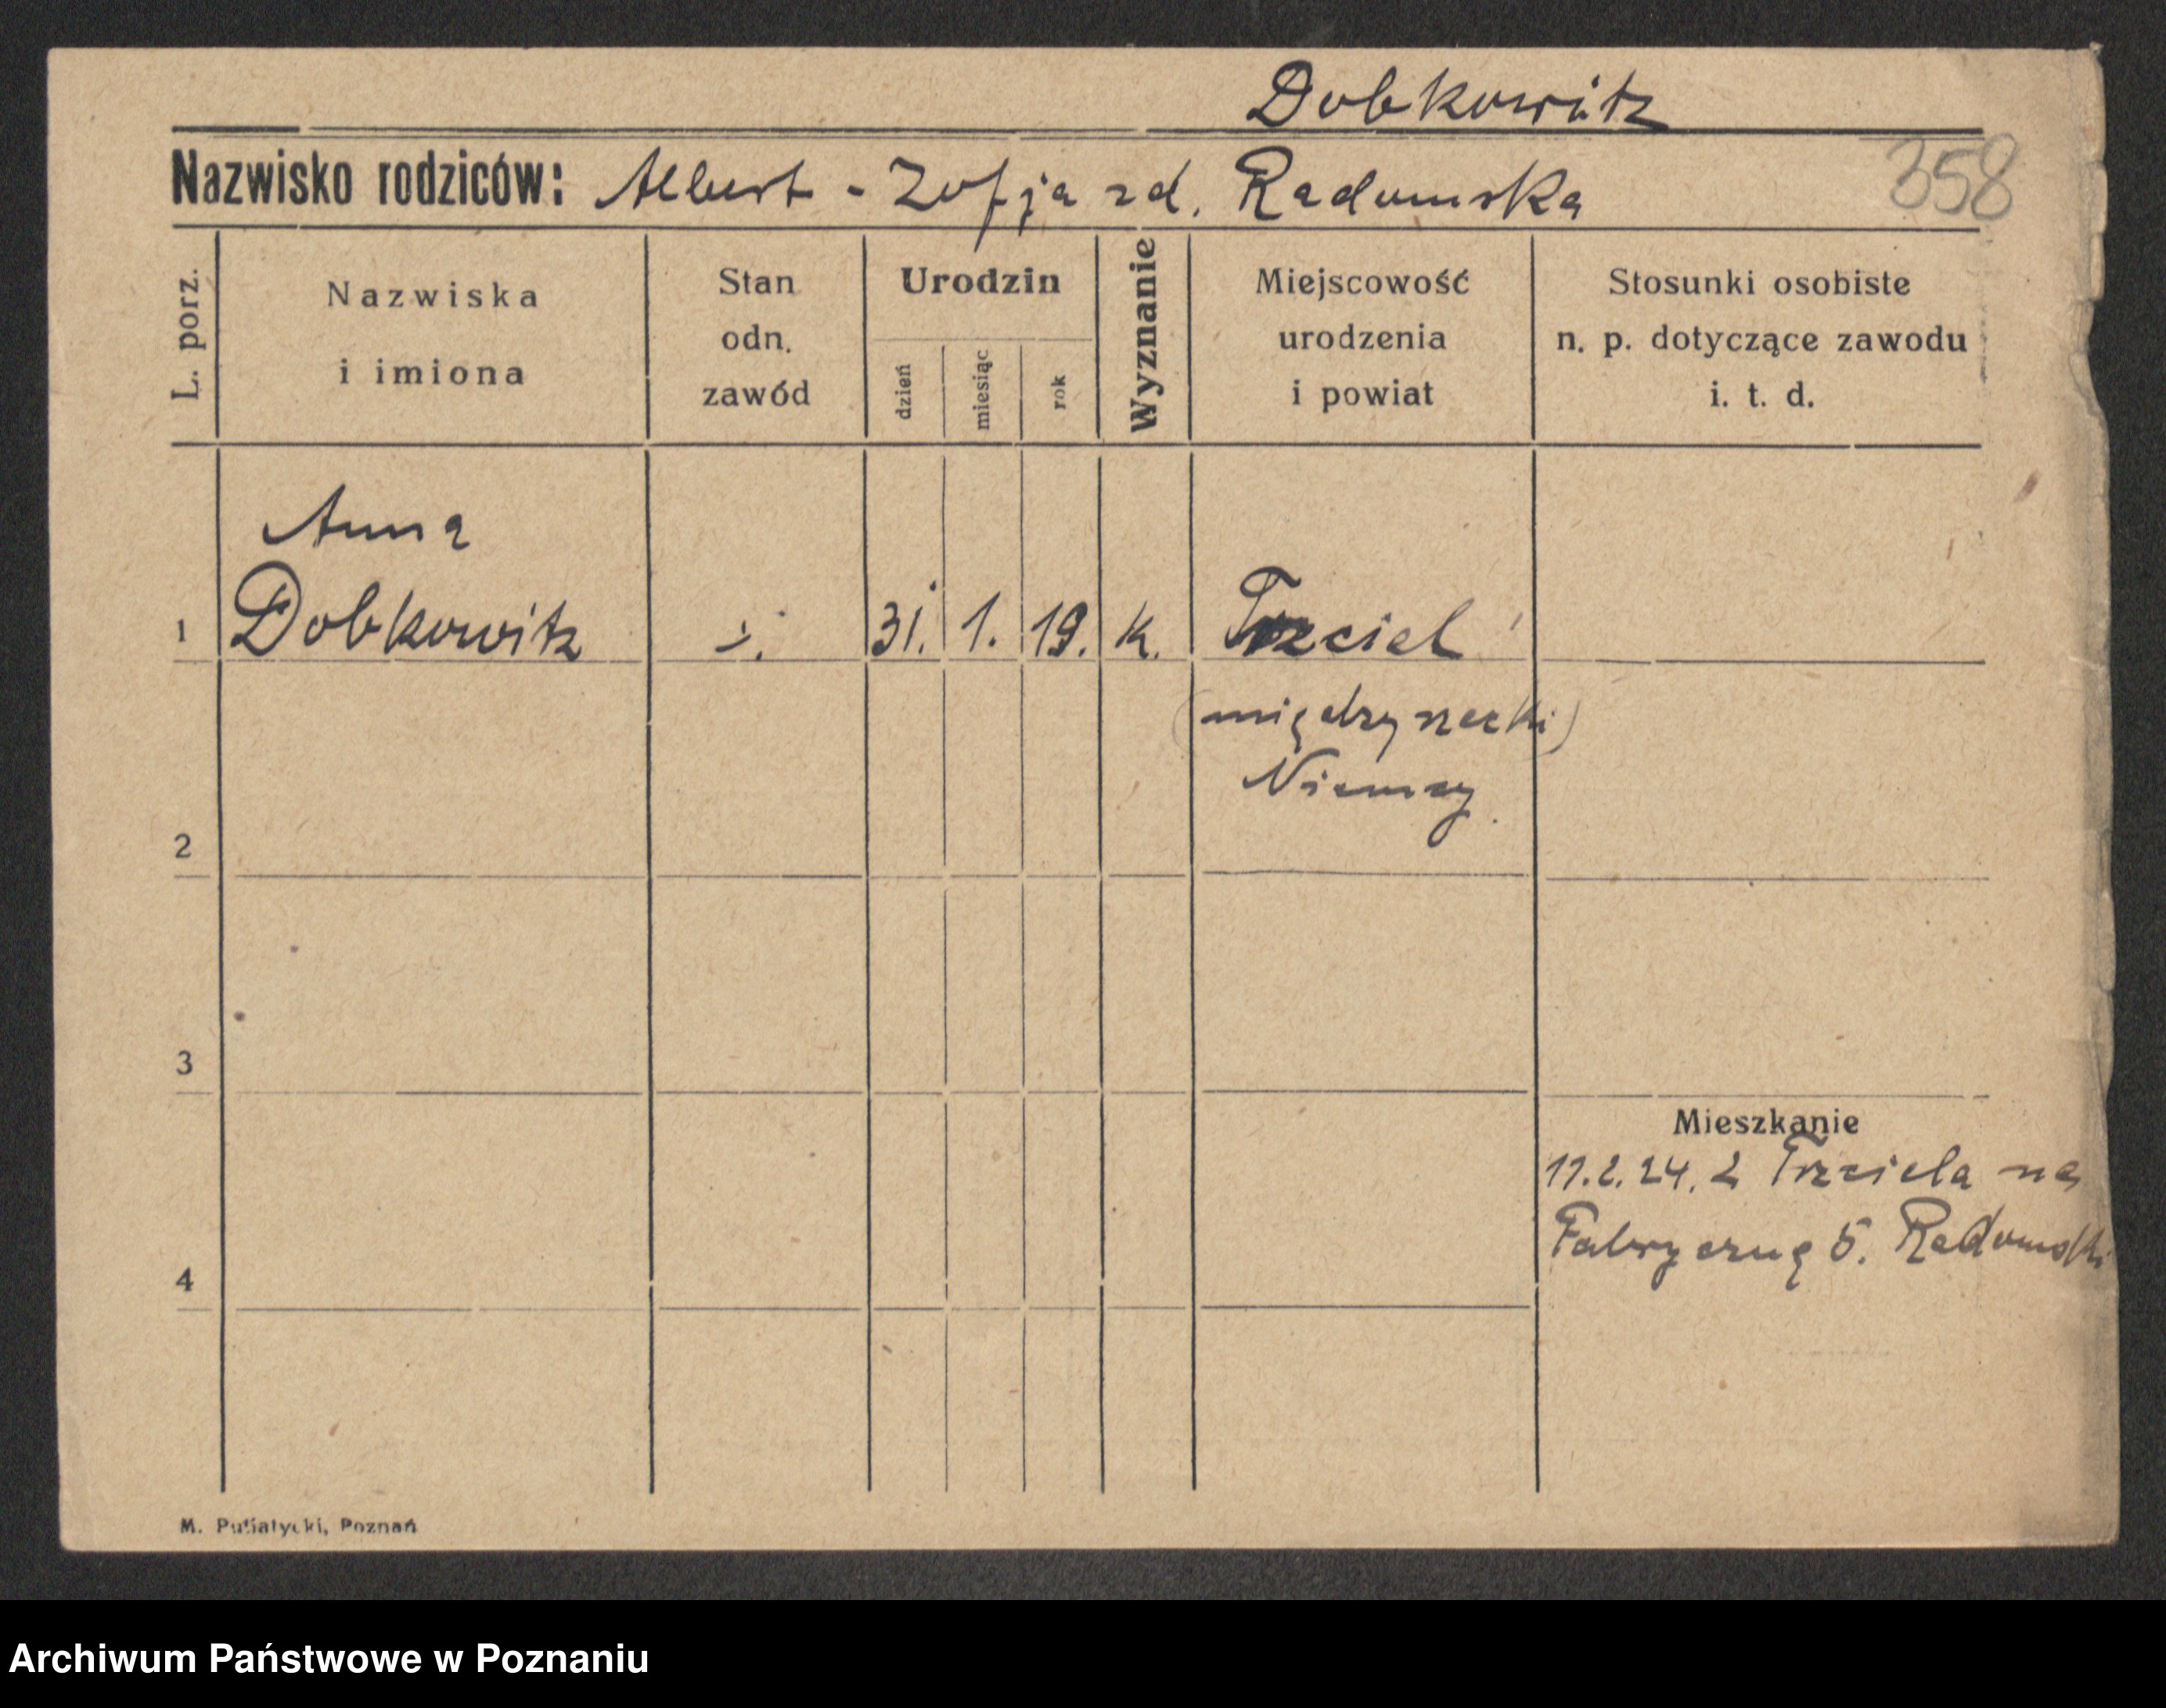 Dobkowitz
Nazwisko rodziców: Albert - Zofja zd. Radomska
358
L. porz.
Nazwiska
i imiona
Stan
odn.
zawód
Urodzin
dzień
miesiąc
rok
Wyznanie
Miejscowość
urodzenia
i powiat
Stosunki osobiste
n. p. dotyczące zawodu
i. t. d.
Anna
1 Dobkowitz 31. 1. 19. k. Trzciel
(międzyrzecki)
Niemcy.
2
3
Mieszkanie
11.2.24. z Trzciela na
Fabryczną 5. Radomski
4
M. Putiatycki, Poznań
Archiwum Państwowe w Poznaniu